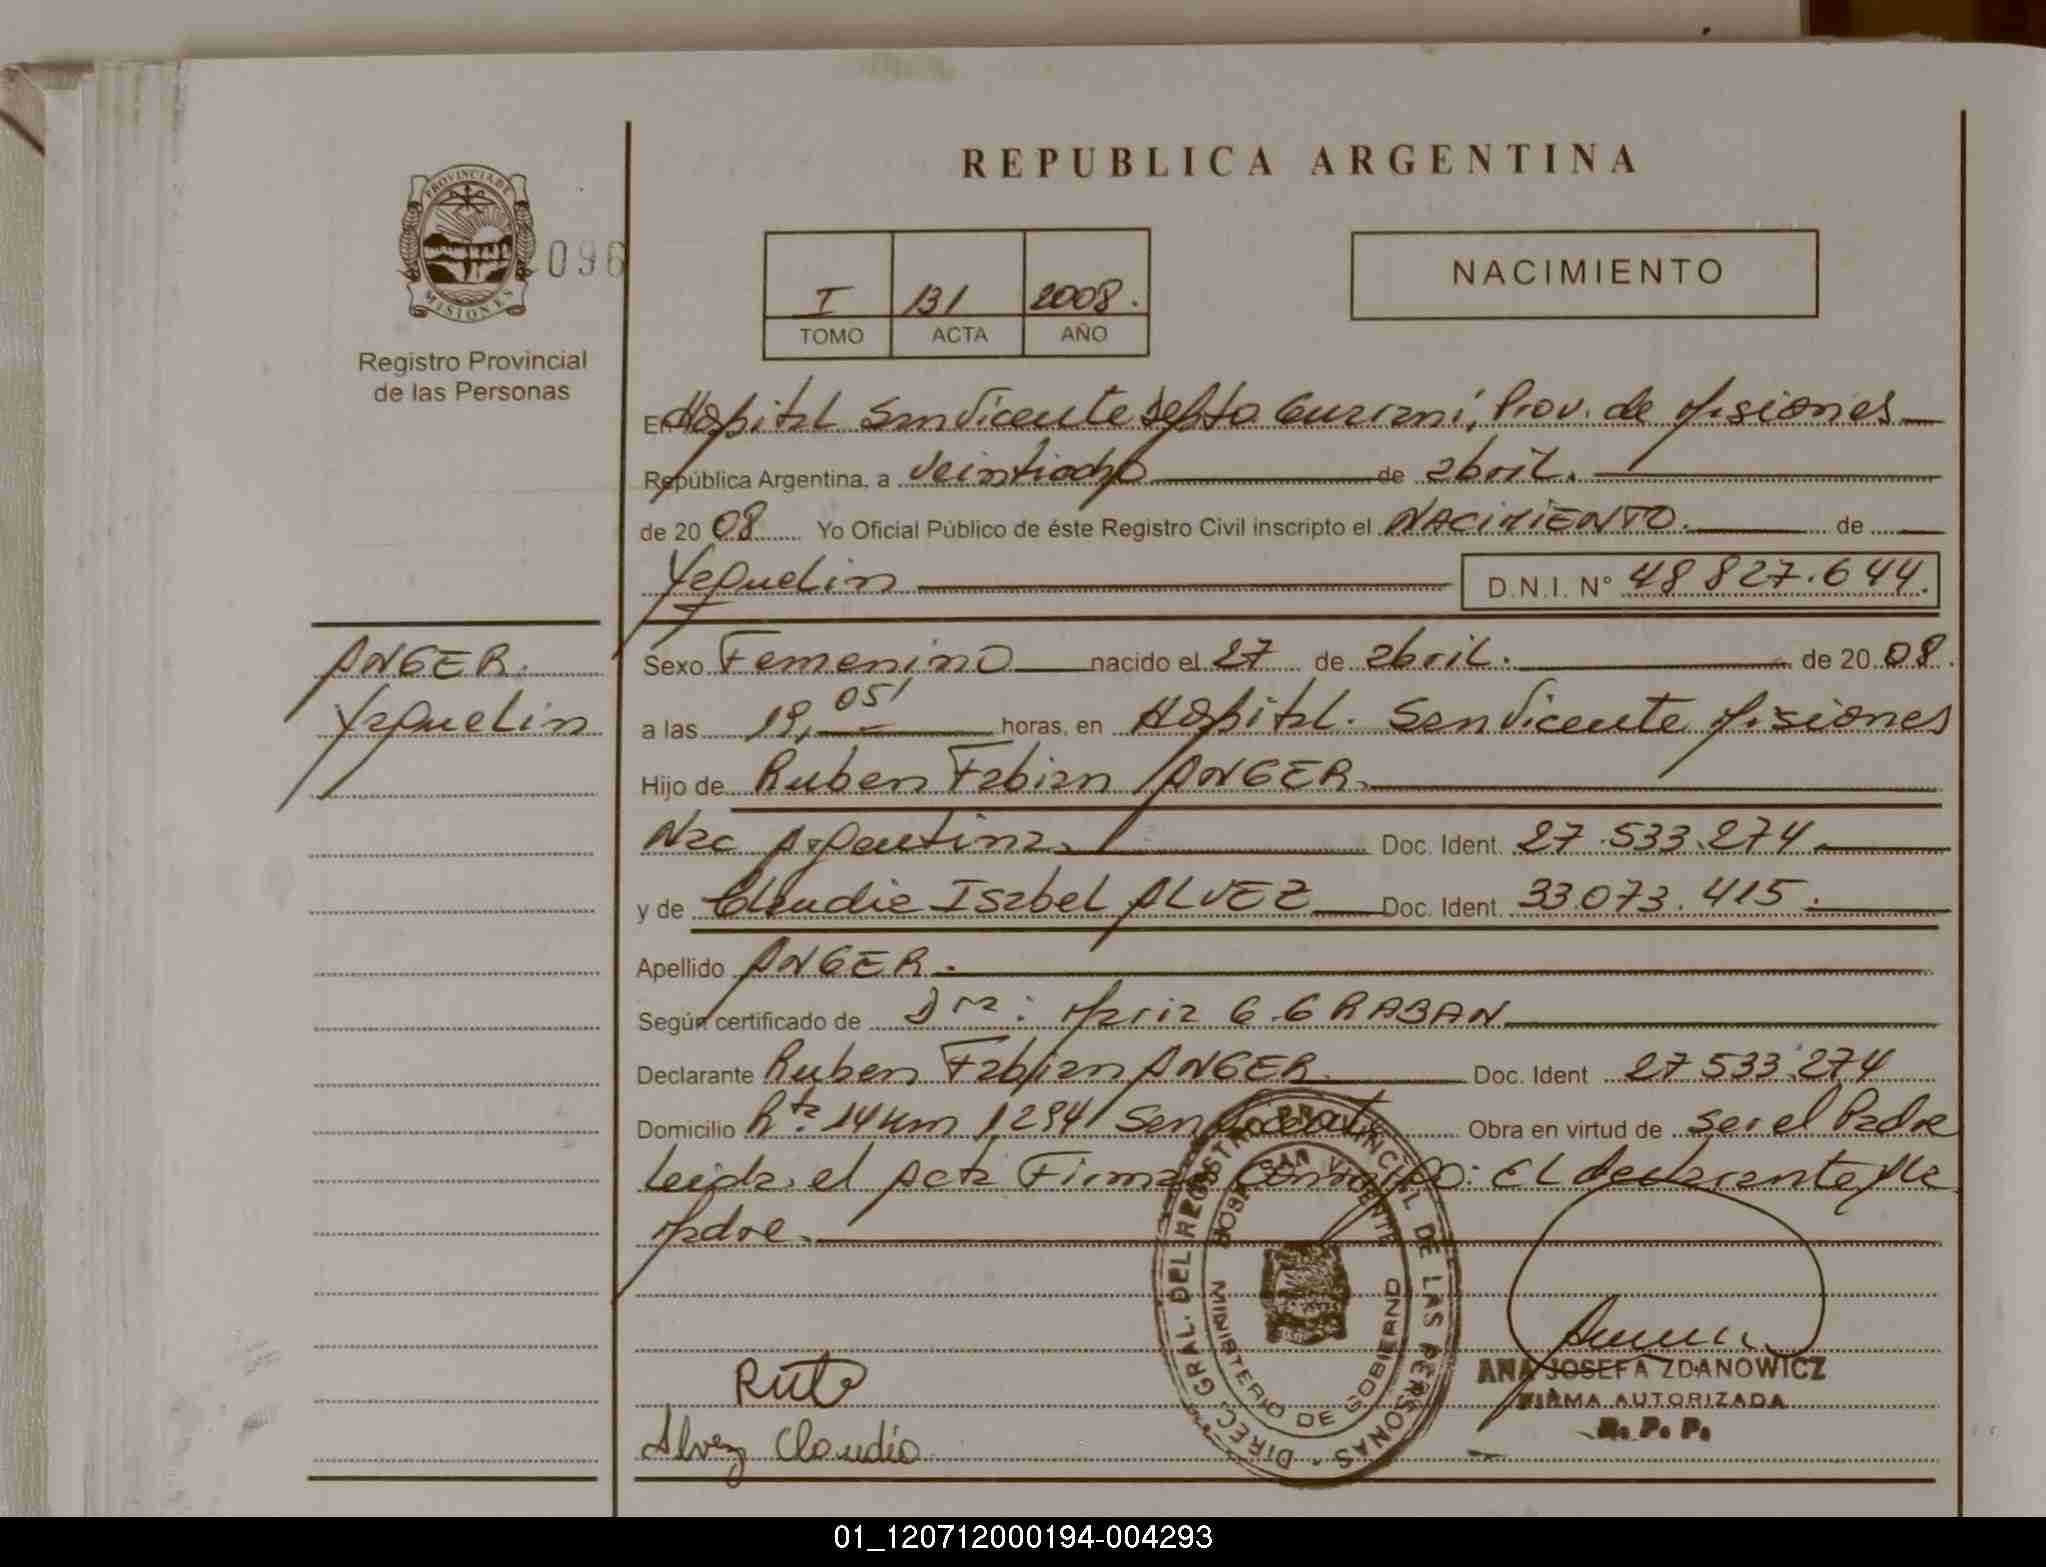 REPUBLICA ARGENTINA
PROVINCIA DE
MISIONES
096
Registro Provincial
de las Personas
I 131 2008.
TOMO ACTA AÑO
NACIMIENTO
En Hospital San Vicente Depto Guarani, Prov. de Misiones
República Argentina, a veintiocho de abril.
de 20 08 Yo Oficial Público de éste Registro Civil inscripto el NACIMIENTO. de
Yaquelin D.N.I. N° 48 827.644.
ANGER.
Yaquelin
Sexo Femenino nacido el 27 de abril. de 20 08.
a las 19,05' horas, en Hospital. San Vicente Misiones
Hijo de Ruben Fabian ANGER.
Nac Argentina. Doc. Ident. 27.533.274
y de Claudia Isabel ALVEZ Doc. Ident. 33.073.415.
Apellido ANGER.
Según certificado de Dra: Maria G. GRABAN
Declarante Ruben Fabian ANGER Doc. Ident 27 533.274
Domicilio Rta. 14 km 1294 San Vicente Obra en virtud de ser el Padre
Leida el Acta Firman conmigo: El declarante y la
Madre.
DIREC. GRAL. DEL REGISTRO PROVINCIAL DE LAS PERSONAS
HOSP. SAN VICENTE
MINISTERIO DE GOBIERNO
ANA JOSEFA ZDANOWICZ
FIRMA AUTORIZADA
R. P. P.
Alvez Claudia
01_120712000194-004293